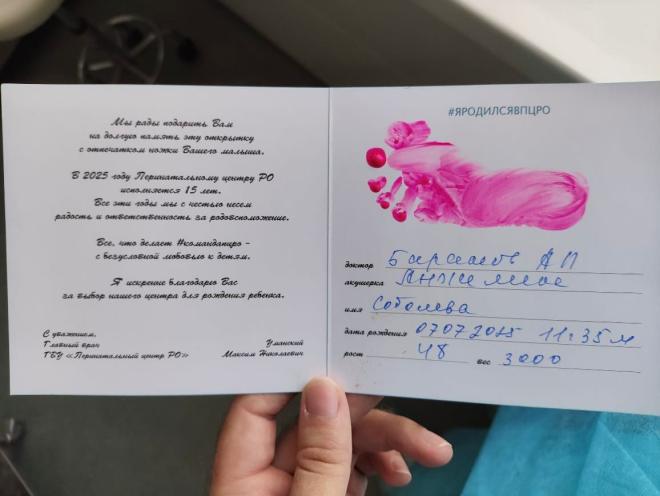 Мы рады подарить Вам
на долгую память эту открытку
с отпечатком ножки Вашего малыша.
В 2025 году Перинатальному центру РО
исполняется 15 лет.
Все эти годы мы с честью несем
радость и ответственность за родовспоможение.
Все, что делает #командапцро -
с безусловной любовью к детям.
Я искренне благодарю Вас
за выбор нашего центра для рождения ребенка.
С уважением,
Главный врач
ГБУ «Перинатальный центр РО»
Уманский
Максим Николаевич
#ЯРОДИЛСЯВПЦРО
доктор АП
акушерка
имя Соболева
дата рождения 07072025 11:35 м
рост 48 вес 3000